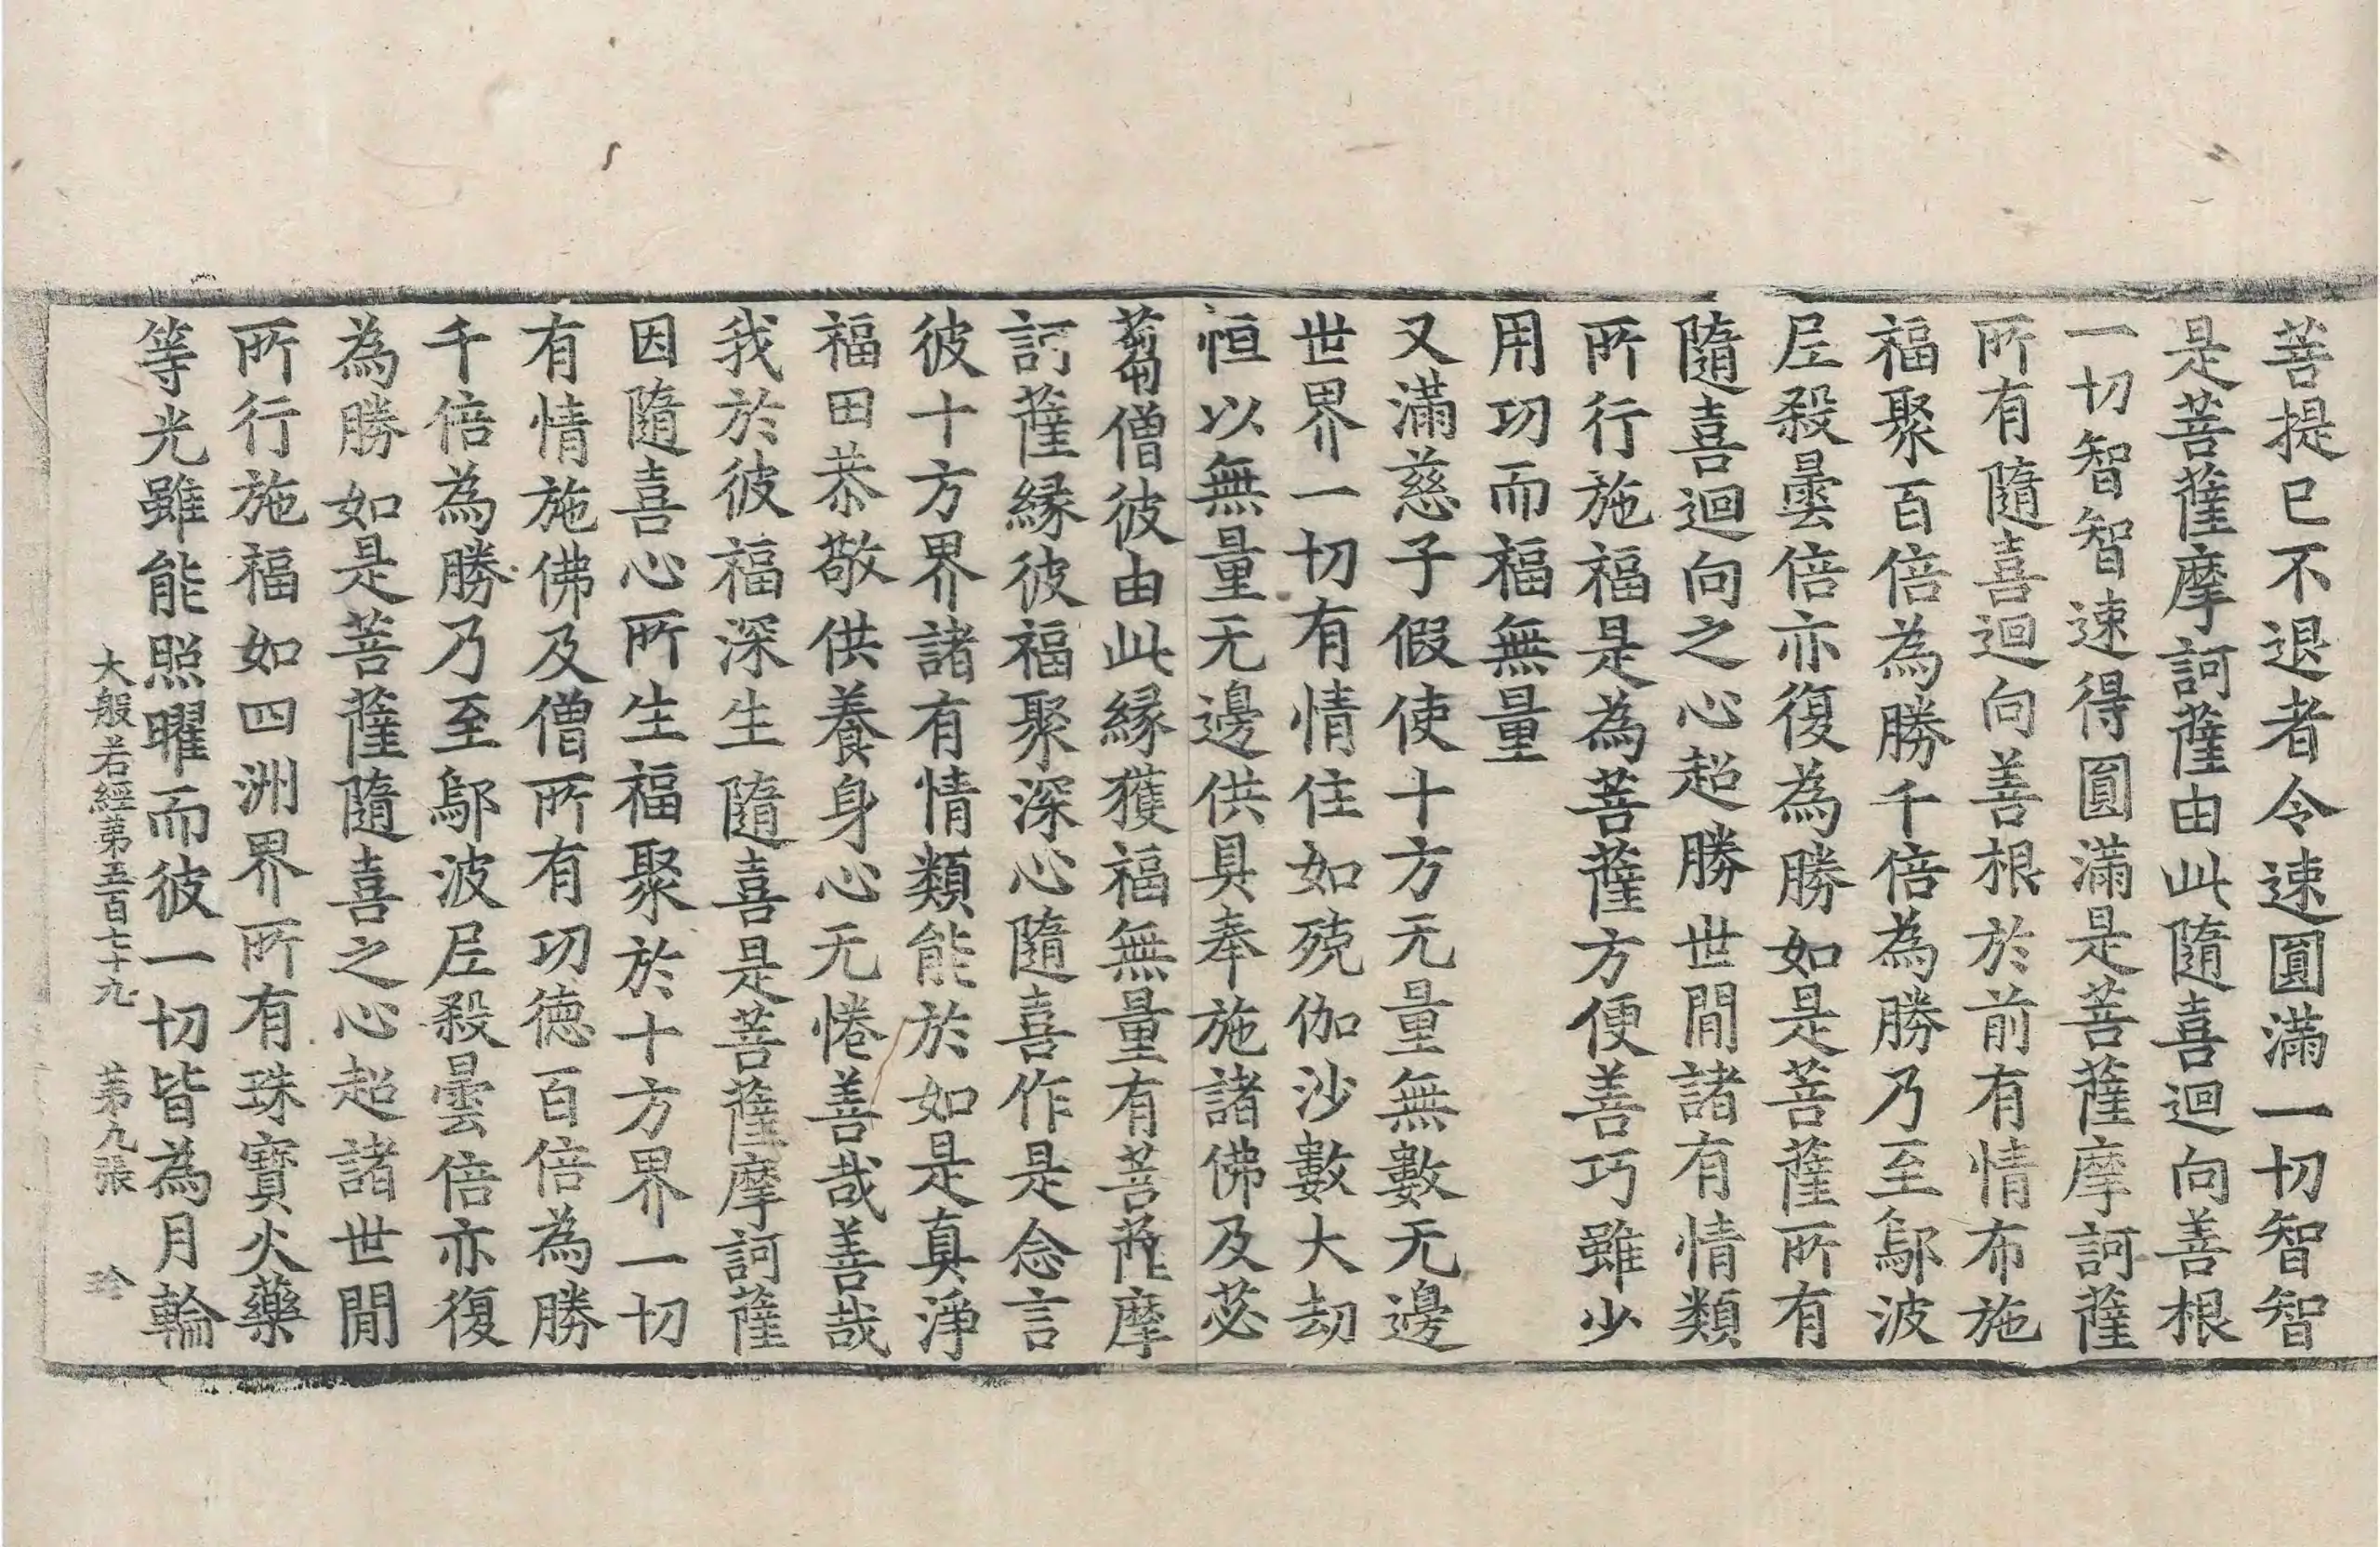 菩提已不退者令速圓滿一切智智
是菩薩摩訶薩由此隨喜迴向善根
一切智智速得圓滿是菩薩摩訶薩
所有隨喜迴向善根於前有情布施
福聚百倍為勝千倍為勝乃至鄔波
尼殺曇倍亦復為勝如是菩薩所有
隨喜迴向之心超勝世間諸有情類
所行施福是為菩薩方便善巧雖少
用功而福無量
又滿慈子假使十方无量無數无邊
世界一切有情住如殑伽沙數大劫
恒以無量无邊供具奉施諸佛及苾
芻僧彼由此緣獲福無量有菩薩摩
訶薩緣彼福聚深心隨喜作是念言
彼十方界諸有情類能於如是真淨
福田恭敬供養身心无惓善哉善哉
我於彼福深生隨喜是菩薩摩訶薩
因隨喜心所生福聚於十方界一切
有情施佛及僧所有功德百倍為勝
千倍為勝乃至鄔波尼殺曇倍亦復
為勝如是菩薩隨喜之心超諸世間
所行施福如四洲界所有珠寶火藥
等光雖能照曜而彼一切皆為月輪
大般若經第五百七十九 第九張 珍